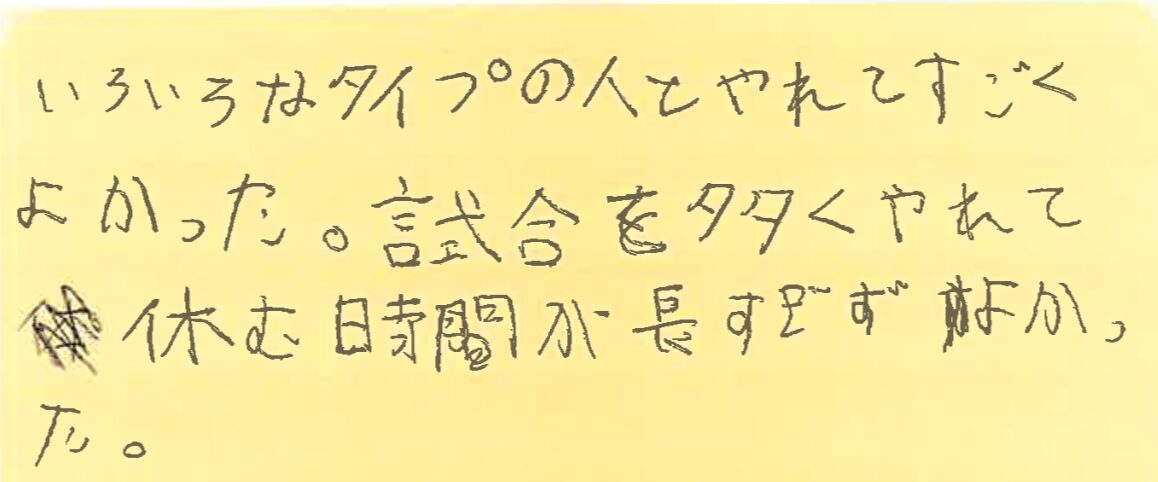 いろいろなタイプの人とやれてすごく
よかった。試合を多くやれて
休む時間が長すぎずよかっ
た。